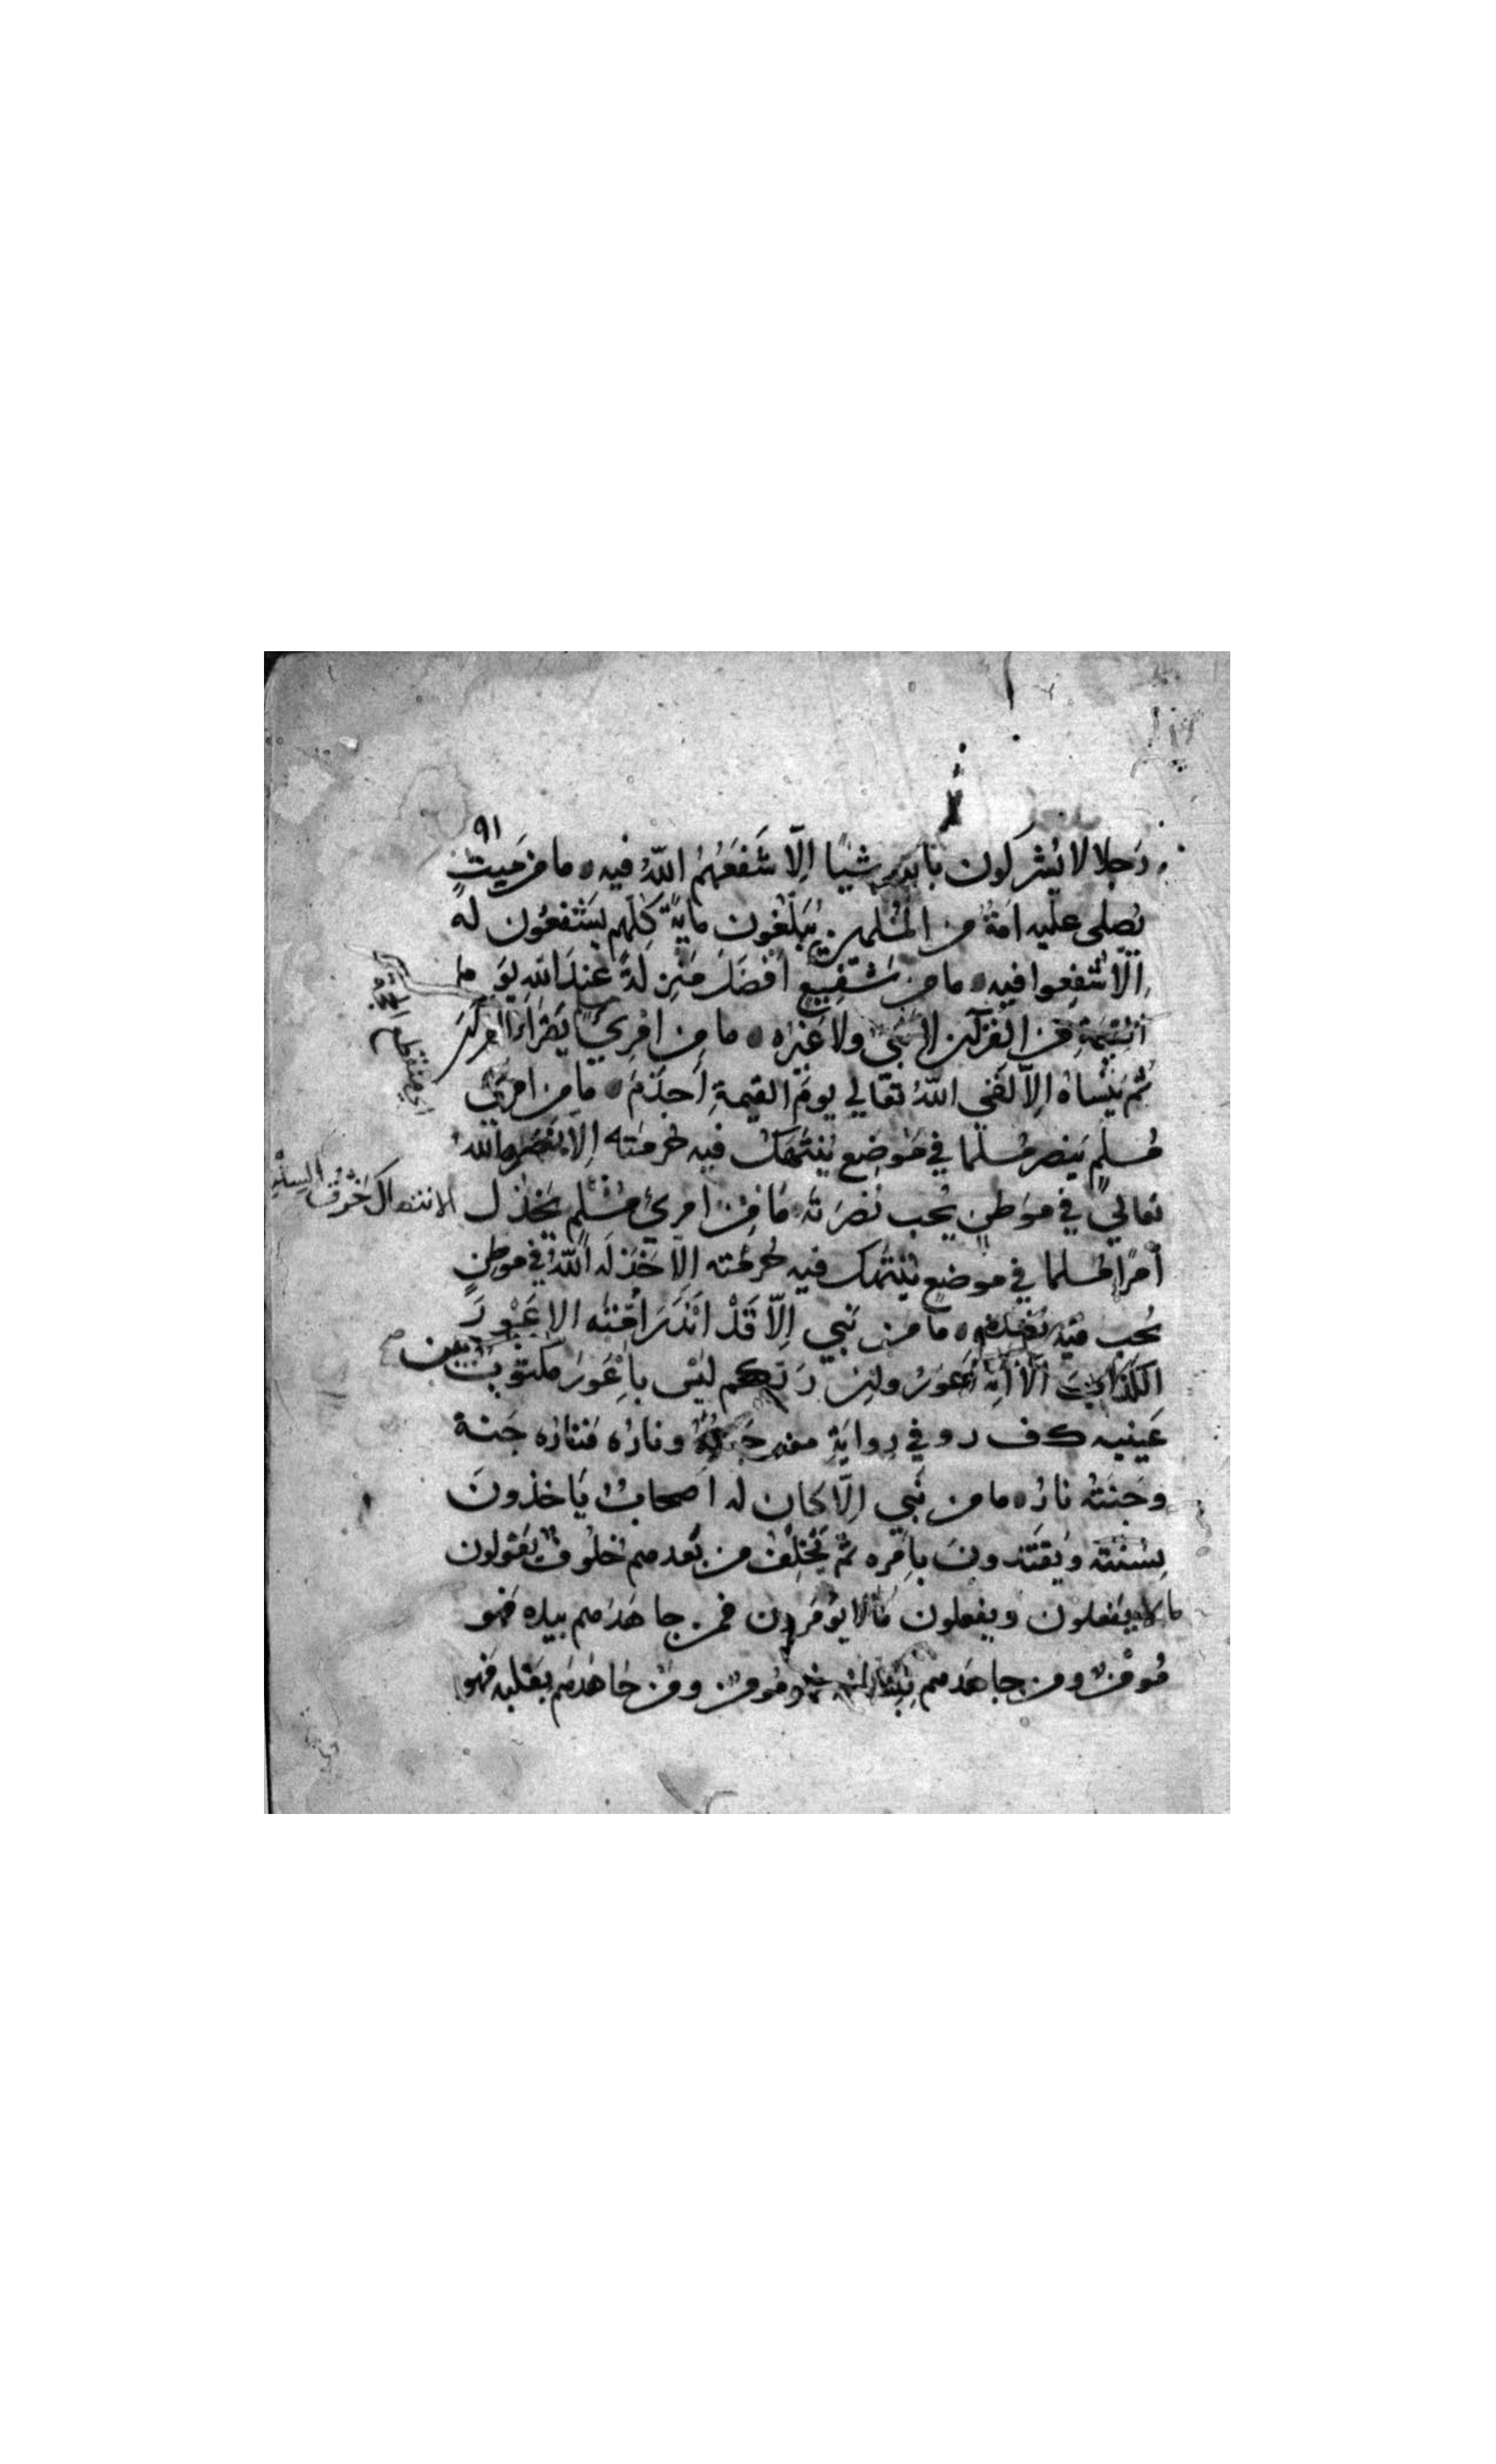 ٩١
رَجلا لا يُشركون بالله شيًا اِلّا شَفّعَهُمُ اللّهُ فيه ٥ ما من مَيتٍ
يُصلى عليه امةٌ من المُسلمين يَبلُغون مايةً كلهم يَشفعُون له
اِلّا شُفِعوا فيه ٥ ما من شَفِيعٍ افضَل مَنزِلةً عندَ اللهِ يوم
القيمةِ مِنَ القرآن لا نبي ولا غيره ٥ ما مِن امرِئ يَقرأ القرآن
ثُم يَنْساه اِلاّ لَقي اللّهَ تعَالي يومَ القيمةِ اَجذَمَ ٥ مَا مِن امرئ
مُسلمٍ يَنصر مُسلمًا في مَوضِع يُنتَهَك فيه حُرمته اِلّا نَصَره اللهُ
تعالي في مَوَطنٍ يُحب نُصرَته مَا مِن امرئ مُسْلمٍ يَخذل
الانتهاك خَرْق السِتر
امرًا مُسلما في موضعٍ يُنتهك فيه حُرمته اِلّا خَذلَه اللّهُ في موطنٍ
يُحب فيه نصرته ٥ ما مِن نَبي اِلّا قَدْ اَنذَرَ اُمّتَه الاعْوَرَ
الكَذّابَ اَلا اِنّه اَعوَرُ وان رَبكم ليْس باَعْوَرَ مكتوبٌ بين
عَينيه ك ف ر وفي رِوايةٍ معه جَنته ونارُه فنارُه جَنة
وجَنتُه نارٌ ٥ ما من نَبي اِلّا كان له اصحابٌ يَاخذونَ
بِسُنّته ويَقتَدونَ بامره ثم تَخلُف من بَعدهم خلُوفٌ يَقولون
ما لا يفعلون ويفعلون مَا لا يُومَرون فمن جاهَدَهم بيده فهو
مُومنٌ ومن جاهَدهم بلسانه فهو مُومن ومن جَاهَدهم بقلبه فهو